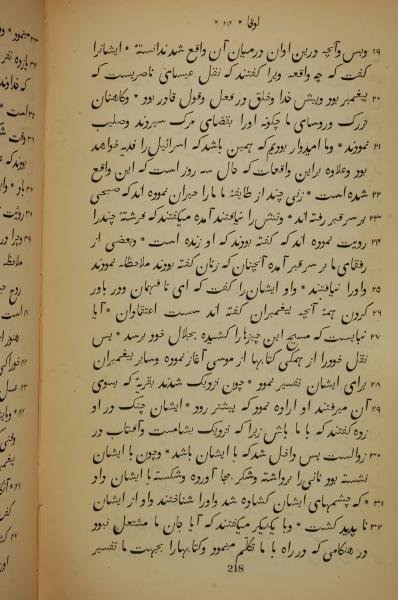 لوقا * ۲۴ *
۱۹ وبس وآنچه درین اوان درمیان آن واقع شد ندانستهٔ * ایشانرا
گفت که چه واقعه ویرا گفتند که نقل عیسای ناصریست که
۲۰ پیغمبر بود وپیش خدا وخلق در فعل وقول قادر بود * وکاهنان
بزرگ وروسای ما چگونه اورا بقضای مرگ سپردند وصلیب
۲۱ نمودند * وما امیدوار بودیم که همین باشد که اسرائیل را فدیه خواهد
بود وعلاوه براین واقعات که حال سه روز است که این واقع
۲۲ شده است * زنی چند از طایفهٔ ما ما را حیران نموده اند که صبحی
۲۳ بر سر قبر رفته اند * وتنش را نیافتند آمده میگفتند که فرشتهٔ چندرا
۲۴ رویت نموده اند که گفته بودند که او زنده است * وبعضی از
رفقای ما بر سر قبر آمده آنچنان که زنان گفته بودند ملاحظه نمودند
۲۵ واورا نیافتند * واو ایشان را گفت که ای نا فهمان ودر باور
۲۶ کردن همهٔ آنچه پیغمبران گفته اند سست اعتقادان * آیا
۲۷ نبایست که مسیح این چیزها را کشیده بجلال خود برسد * پس
نقل خودرا از همگی کتابها از موسی آغاز نموده وسایر پیغمبران
۲۸ برای ایشان تفسیر نمود * چون نزدیک شدند بقریهٔ که بسوی
۲۹ آن میرفتند او اراده نمود که پیشتر رود * ایشان چنگ در او
زده گفتند که با ما باش زیرا که نزدیک بشامست وآفتاب در
۳۰ زوالست پس داخل شد که با ایشان باشد * وچون با ایشان
نشسته بود نانی را برداشته وشکر بجا آورده وشکسته با ایشان داد
۳۱ * که چشمهای ایشان کشاده شد واورا شناختند واو از ایشان
۳۲ نا پدید گشت * وبا یکدیگر میگفتند که آیا جان ما مشتعل نبود
در هنگامی که در راه با ما تکلم مینمود وکتابهارا بجهت ما تفسیر
218